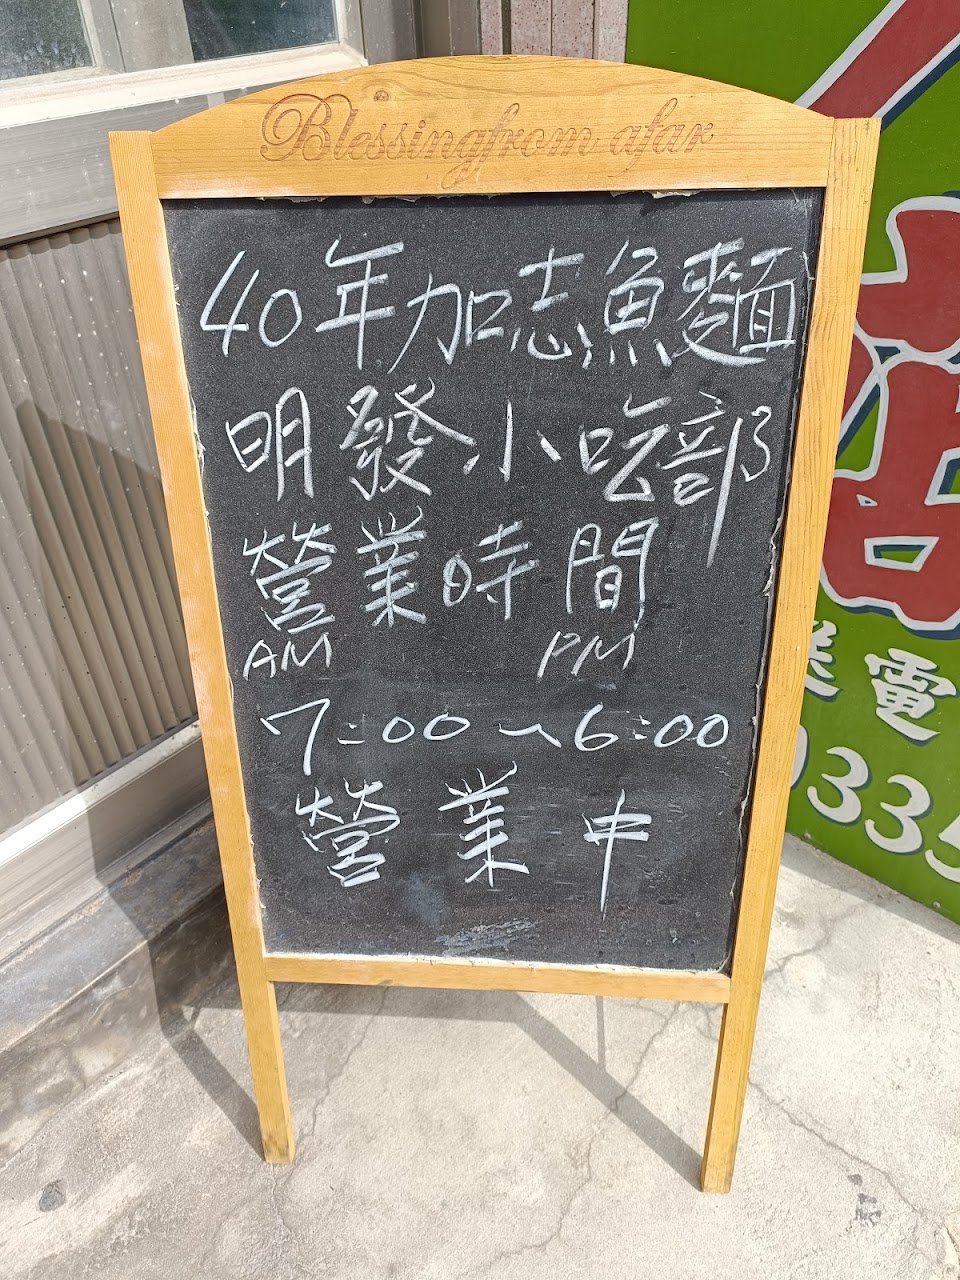 Blessingfrom afar
40年加志魚麵
明發小吃部
營業時間
AM PM
7:00~6:00
營業中
電
0335